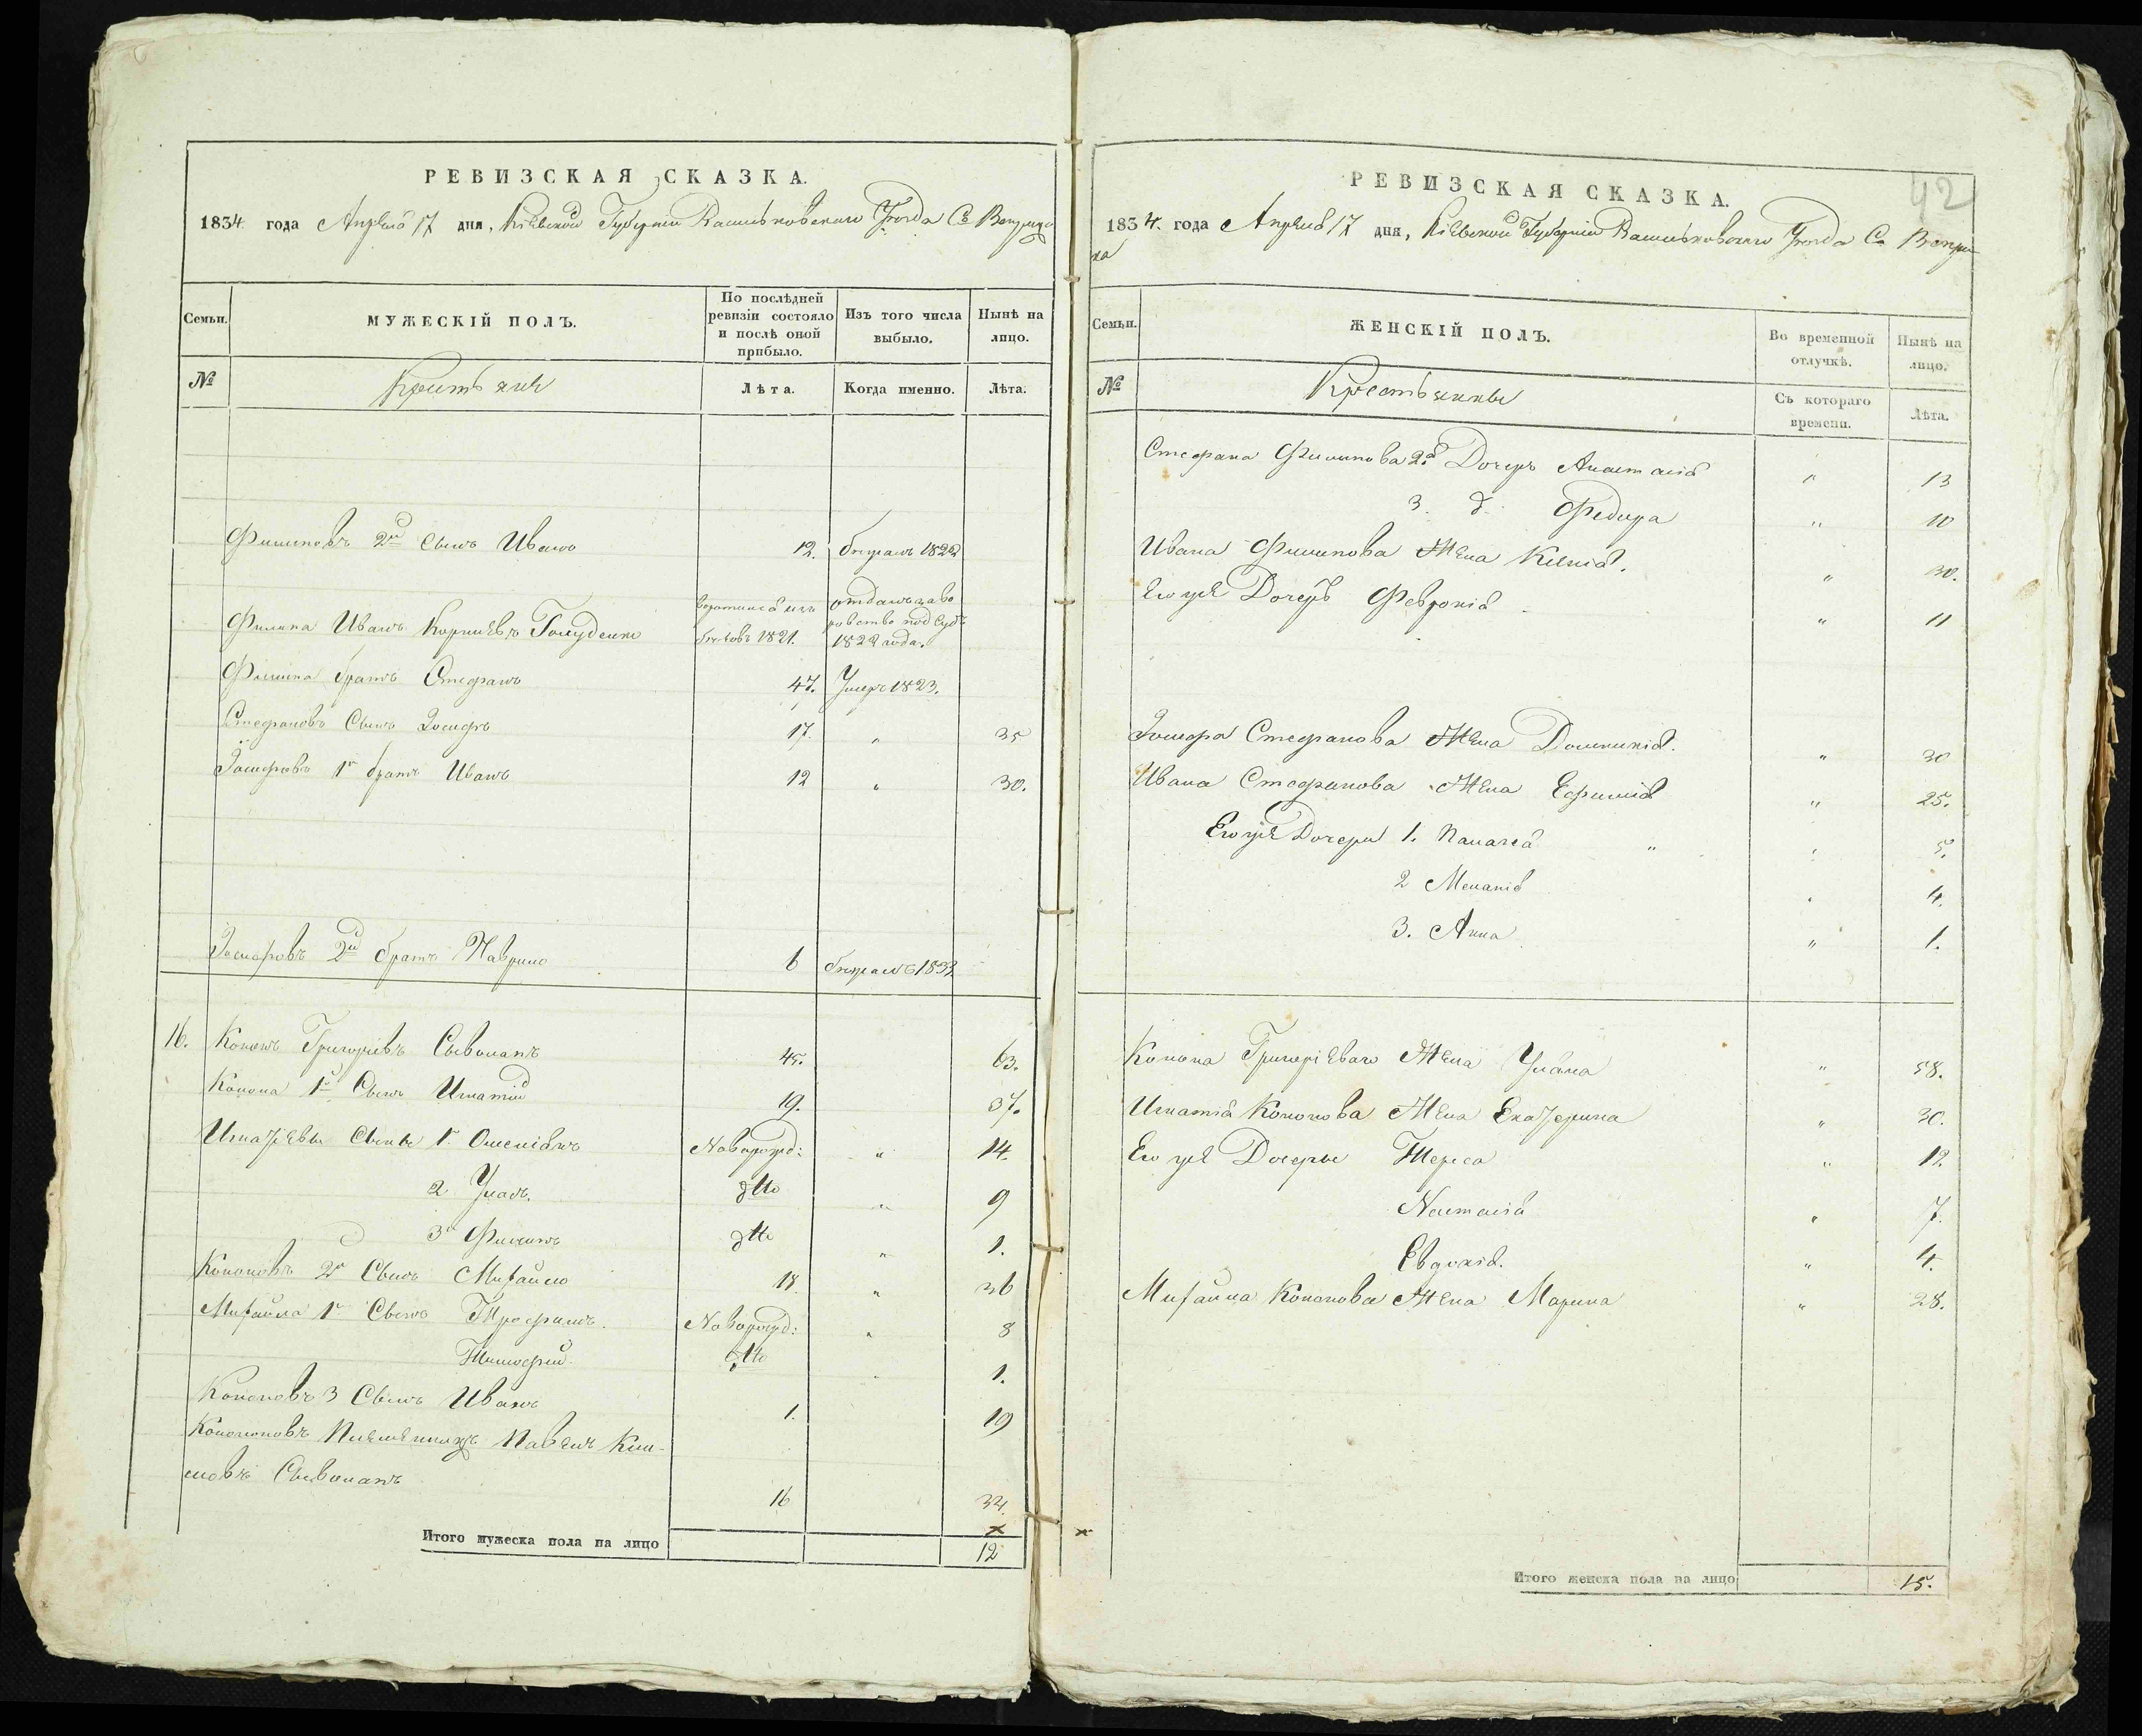 РЕВИЗСКАЯ СКАЗКА.
1834 года Апреля 17 дня, Кіевской Губерніи Васильковскаго Уезда С.
Семьи.
МУЖЕСКІЙ ПОЛЪ.
По послѣдней ревизіи состояло и послѣ оной прибыло.
Изъ того числа выбыло.
Нынѣ на лицо.
№
Крестьяне
Лѣта.
Когда именно.
Лѣта.
Филиповъ 2й Сынъ Иванъ 12. бежалъ 1822
Филипа Иванъ Корніевъ 1821. отданъ за во
ровство под Судъ
1822 года.
Филипа братъ Стефанъ 47. Умеръ 1823.
Стефановъ Сынъ Іосифъ 17. " 35
Іосифовъ 1й братъ Иванъ 12 " 30.
Іосифовъ 2й братъ Гаврило 6 бежалъ
16. Кононъ Григоріевъ Сывопапъ 45. 63.
Конона 1й Сынъ Игнатій 19. 37.
Игнатіевы Сыны 1й Новорожд: " 14.
2 Уласъ. дtto " 9
3й Филипъ дtto " 1.
Кононовъ 2й Сынъ Михайло 18. " 36
Михайла 1й Сынъ Трофимъ. Новорожд: " 8
Тимофій dtto 1.
Кононовъ 3 Сынъ Иванъ 1. 19
Кононовъ Племянникъ Павелъ Кли-
мовъ Сывопапъ
16 34.
х
Итого мужеска пола на лицо 12
42
РЕВИЗСКАЯ СКАЗКА.
1834. года Апреля 17 дня, Кіевской Губерніи Васильковскаго Уезда С.
ка
Семьи.
ЖЕНСКІЙ ПОЛЪ.
Во временной отлучкѣ.
Нынѣ на лицо.
№
Крестьянки
Съ котораго времени.
Лѣта.
Стефана Филипова 2я Дочерь Анастасія " 13
3. д. Федира " 10
Ивана Филипова Жена Ксенія. " 30.
Его же Дочерь Февронія " 11
Іосифа Стефанова Жена Домникія. " 30
Ивана Стефанова Жена Ефимія " 25.
Его же Дочери 1. Палагея " 5.
2 Меланія 4.
3. Анна " 1.
Конона Григоріеваго Жена Уліана " 58.
Игнатія Кононова Жена Екатерина " 30.
Его же Дочеры Тереса " 12.
Настасія " 7.
Евдокія. " 4.
Михайла Кононова Жена Марина " 28.
х
Итого женска пола на лицо 15.